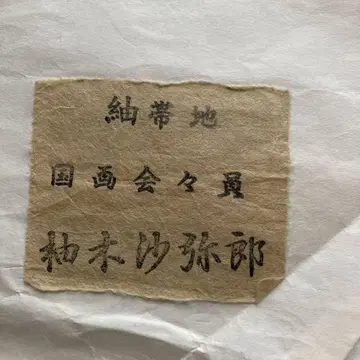 紬帯地
国画会々員
柚木沙弥郎